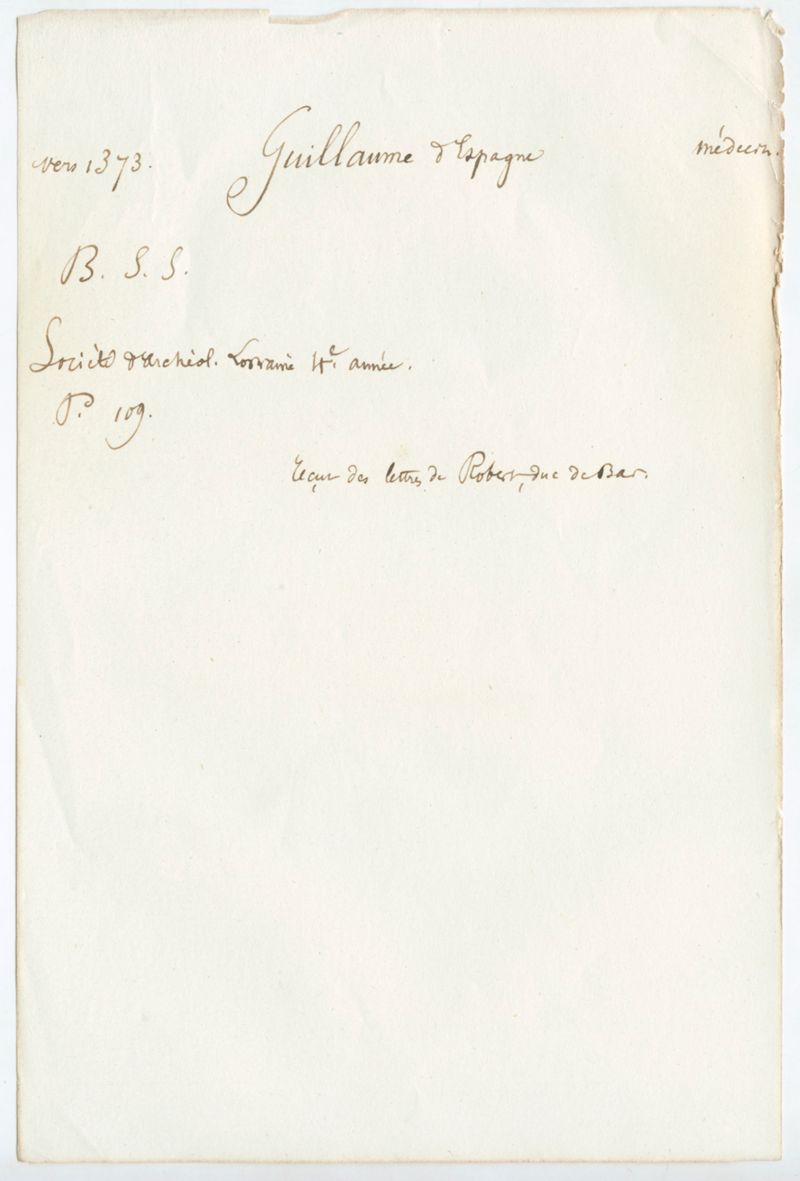 vers 1373. Guillaume d'Espagne médecin.
B. S. S.
Société d'archéol. Lorraine 4e. année.
P.d 109.
reçut des lettres de Robert, duc de Bar.